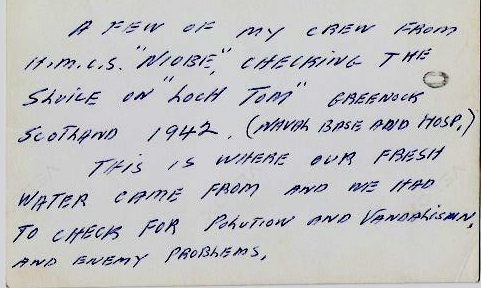 A FEW OF MY CREW FROM
H.M.C.S. "NIOBE", CHECKING THE
SLUICE ON "LOCH TOM" GREENOCK
SCOTLAND 1942. (NAVAL BASE AND HOSP.)
THIS IS WHERE OUR FRESH
WATER CAME FROM AND WE HAD
TO CHECK FOR POLUTION AND VANDALISMN,
AND ENEMY PROBLEMS.